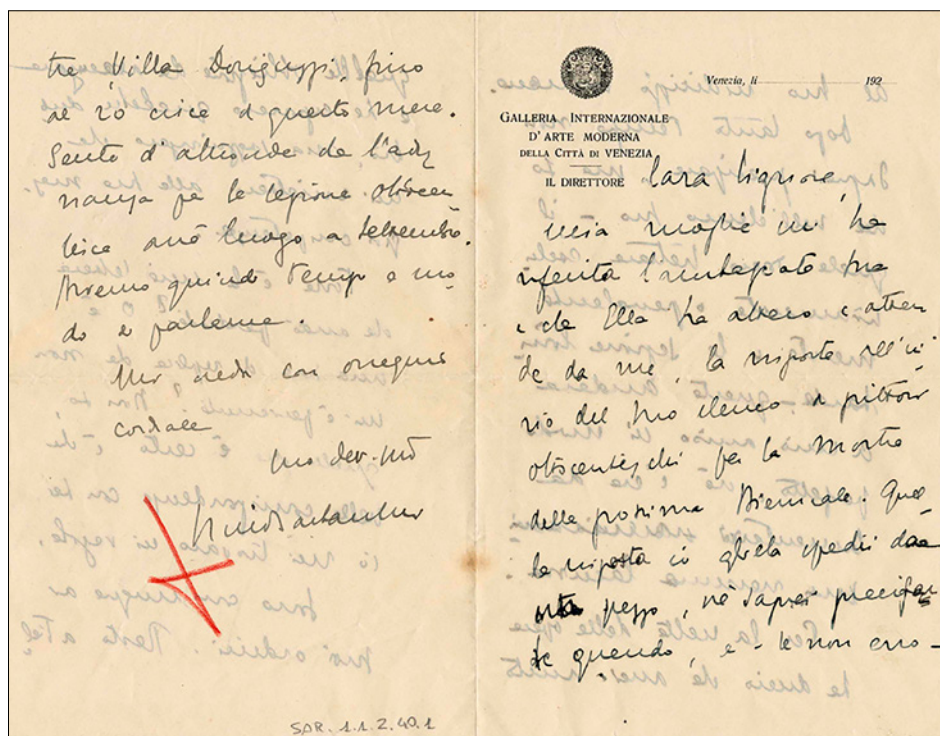 tre, Villa fino
al 20 circa di questo mese.
Sento d'altronde che l'adu
nanza per la sezione ottocen
tesca avrà luogo a settembre.
Avremo quindi tempo e mo
do di parlarne.
Mi creda con ossequio
cordiale
suo dev.mo
Nino Barbantini
SDR. 1.1.2.40.1
Venezia, li 192
GALLERIA INTERNAZIONALE
D'ARTE MODERNA
DELLA CITTÀ DI VENEZIA
IL DIRETTORE Cara Signora,
mia moglie mi ha
riferito
e che Ella ha atteso e atten
de da me, la risposta all'in
vio del suo elenco di pittori
ottocenteschi per la Mostra
della prossima Biennale. Quel
la risposta io gliela spedii da
un pezzo, nè saprei precisar
le quando, e - se non erro -